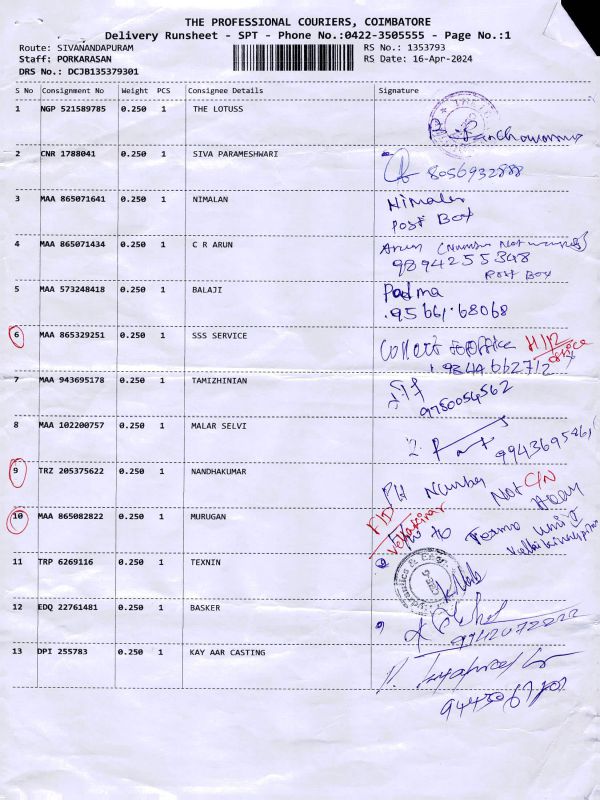 THE PROFESSIONAL COURIERS, COIMBATORE
Delivery Runsheet - SPT - Phone No.:0422-3505555 - Page No.:1
Route: SIVANANDAPURAM RS No.: 1353793
Staff: PORKARASAN RS Date: 16-Apr-2024
DRS No.: DCJB135379301
S No Consignment No Weight PCS Consignee Details Signature
1 NGP 521589785 0.250 1 THE LOTUSS
2 CNR 1788041 0.250 1 SIVA PARAMESHWARI 8056932888
3 MAA 865071641 0.250 1 NIMALAN Nimalen
Post Box
4 MAA 865071434 0.250 1 C R ARUN Arun (Number Not
9894255348
Post Box
5 MAA 573248418 0.250 1 BALAJI Padma
95661.68068
6 MAA 865329251 0.250 1 SSS SERVICE Collect to office
office
7 MAA 943695178 0.250 1 TAMIZHINIAN
8 MAA 102200757 0.250 1 MALAR SELVI
9 TRZ 205375622 0.250 1 NANDHAKUMAR PH Number Not C/N
10 MAA 865082822 0.250 1 MURUGAN to
11 TRP 6269116 0.250 1 TEXNIN
12 EDQ 22761481 0.250 1 BASKER
13 DPI 255783 0.250 1 KAY AAR CASTING